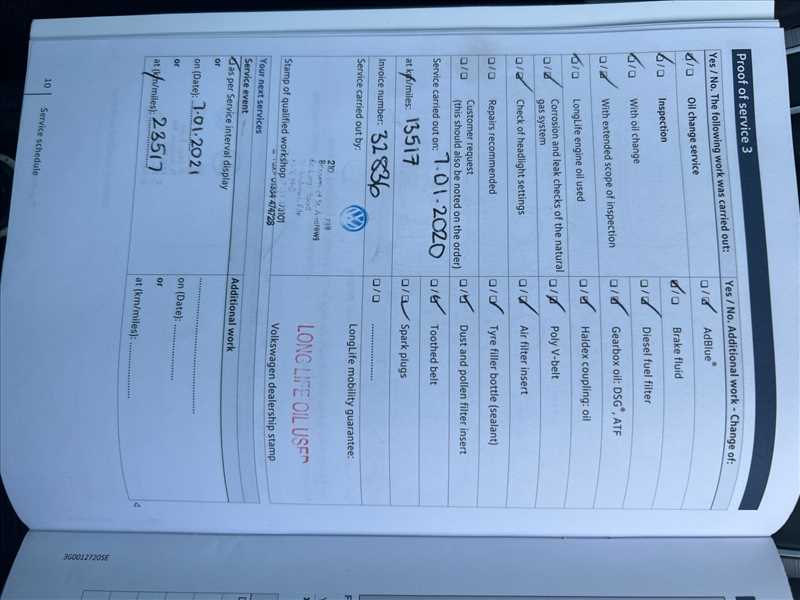 Proof of service 3
Yes / No. The following work was carried out:
Oil change service
Inspection
With oil change
With extended scope of inspection
LongLife engine oil used
Corrosion and leak checks of the natural
gas system
Check of headlight settings
Repairs recommended
Customer request
(this should also be noted on the order)
Service carried out on: 7.01.2020
at km/miles: 13517
Invoice number: 32836
Service carried out by:
Stamp of qualified workshop
01334 474728
Yes / No. Additional work - Change of:
AdBlue®
Brake fluid
Diesel fuel filter
Gearbox oil: DSG®, ATF
Haldex coupling: oil
Poly V-belt
Air filter insert
Tyre filler bottle (sealant)
Dust and pollen filter insert
Toothed belt
Spark plugs
LongLife mobility guarantee:
LONG LIFE OIL USED
Volkswagen dealership stamp
Your next services
Service event
as per Service interval display
or
on (Date): 7.01.2021
or
at (km/miles): 23517
Additional work
on (Date):
or
at (km/miles):
10
Service schedule
3G0012720SE